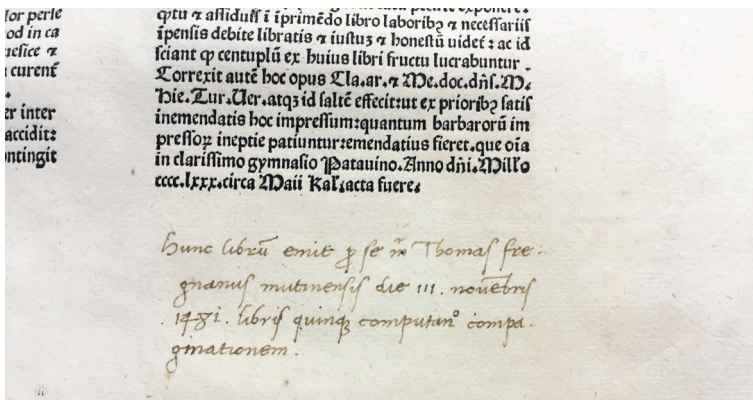 lor perle
od in ca
uefice ⁊
curent̄
er inter
accidit:
ontingit
ꝙtu ⁊ assiduss ī īprimēdo libro laboribꝫ ⁊ necessariis
īpensis debite libratis ⁊ iustuꝫ ⁊ honestū uidet̄ : ac id
sciant ꝙ centuplū ex huius libri fructu lucrabuntur .
Correxit autē hoc opus Cla.ar.⁊ Me.doc.dn̄s.M.
Hie. Tur. Uer.atqꝫ id saltē effecit:ut ex prioribꝫ satis
inemendatis hoc impressum:quantum barbarorū im
pressoꝝ ineptie patiuntur:emendatius fieret.que oīa
in clarissimo gymnasio Patauino.Anno dn̄i.Millo
cccc.lxxx.circa Maii Kal.acta fuere.
Hunc librū emit ꝓ se Thomas fre-
gnanus mutinensis die III. nouēbris
1481. libris quinqꝫ computanº compa-
ginationem .